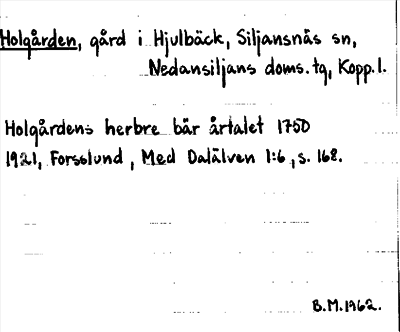 Holgården, gård i Hjulbäck, Siljansnäs sn,
Nedansiljans doms. tg, Kopp. l.
Holgårdens herbre bär årtalet 1750
1921, Forsslund, Med Dalälven 1:6, s. 168.
B.M. 1962.